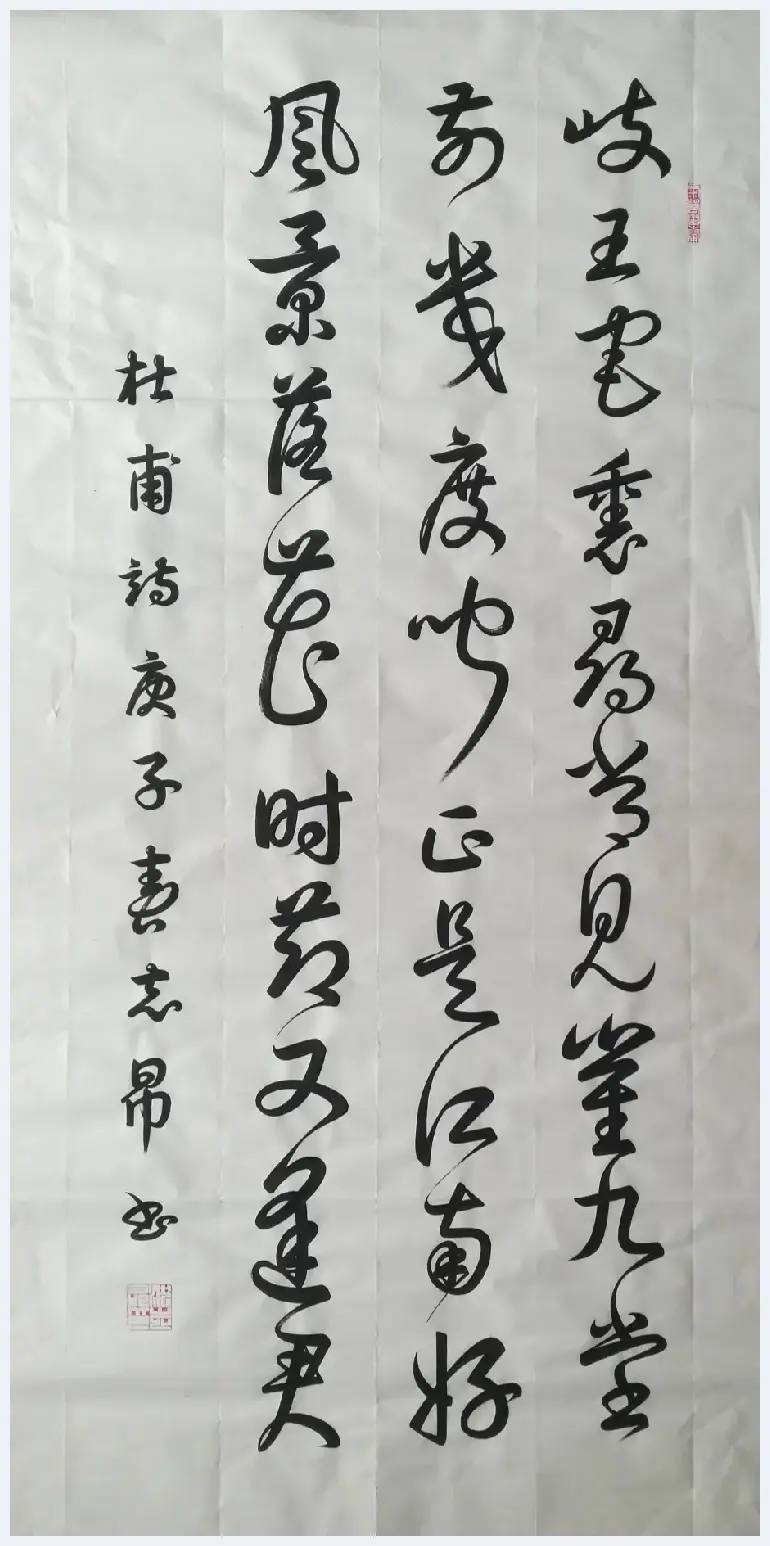 岐王宅裏尋常見崔九堂
前幾度聞正是江南好
風景落花时節又逢君
杜甫詩庚子志书